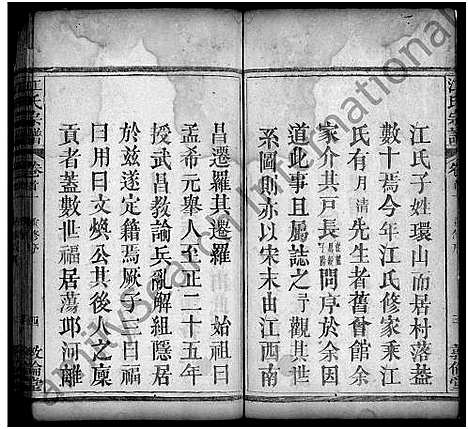 江氏子姓環山而居村落葢
數十焉今年江氏修家乗江
氏有月清先生者舊會館余
家介其戸長問序於余因
道此事且屬誌之予觀其世
系圖則亦以宋末由江西南
昌遷羅其遷羅始祖曰
孟希元舉人至正二十五年
授武昌教諭兵亂解組隱居
於兹遂定籍焉厥子三曰斌
曰貴曰文煥公其後人之廩
貢者葢數世福居蕩邛河離
江氏宗譜
卷首
敦倫堂
江氏宗譜
三
敦倫堂
FamilySearch International